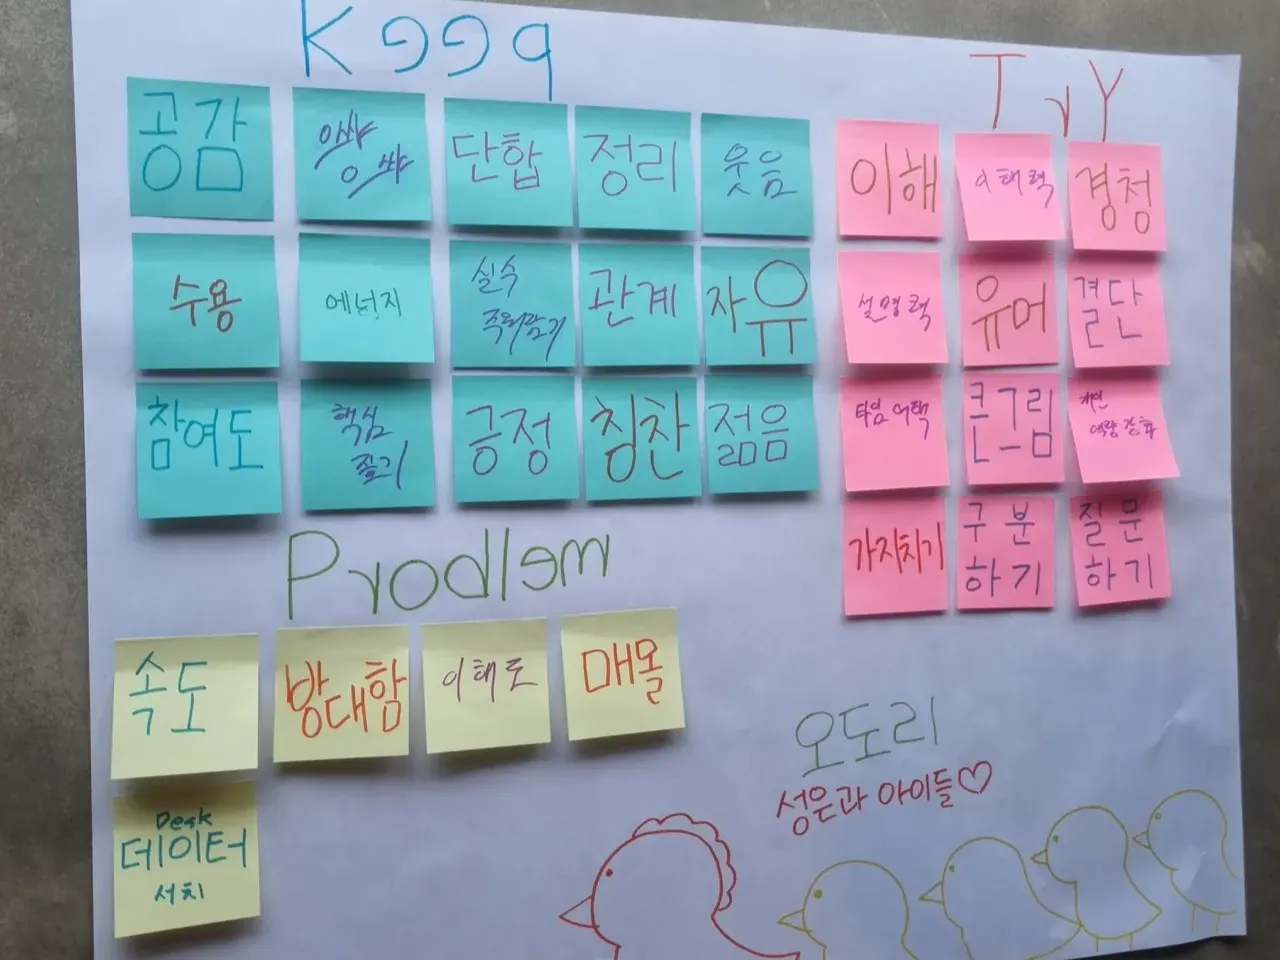 Keep
공감
으쌰
으쌰
단합
정리
웃음
수용
에너지
실수
주워담기
관계
자유
참여도
핵심
짚기
긍정
칭찬
젊음
Try
이해
이해력
경청
설명력
유머
결단
타임어택
큰그림
개인
역량강화
가지치기
구분
하기
질문
하기
Problem
속도
방대함
이해도
매몰
Desk
데이터
서치
오도리
성은과 아이들♡